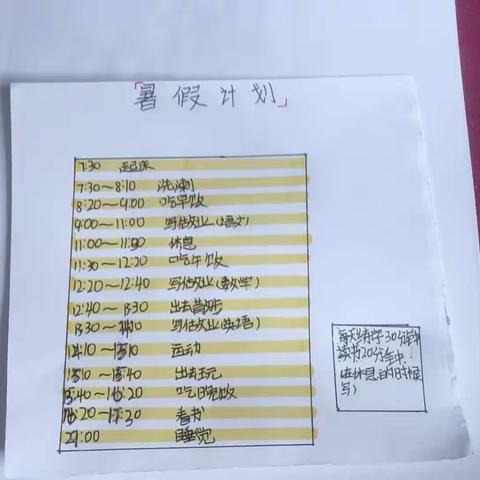 「暑假计划」
7:30 起床
7:30~8:10 洗漱
8:20~9:00 吃早饭
9:00~11:00 写作业(语文)
11:00~11:30 休息
11:30~12:20 吃午饭
12:20~12:40 写作业(数学)
12:40~13:30 出去散步
13:30~14:10 写作业(英语)
14:10~15:10 运动
15:10~15:40 出去玩
15:40~16:20 吃晚饭
16:20~17:30 看书
21:00 睡觉
每天练字30分钟
读书20分钟!
(在休息的时候
写)